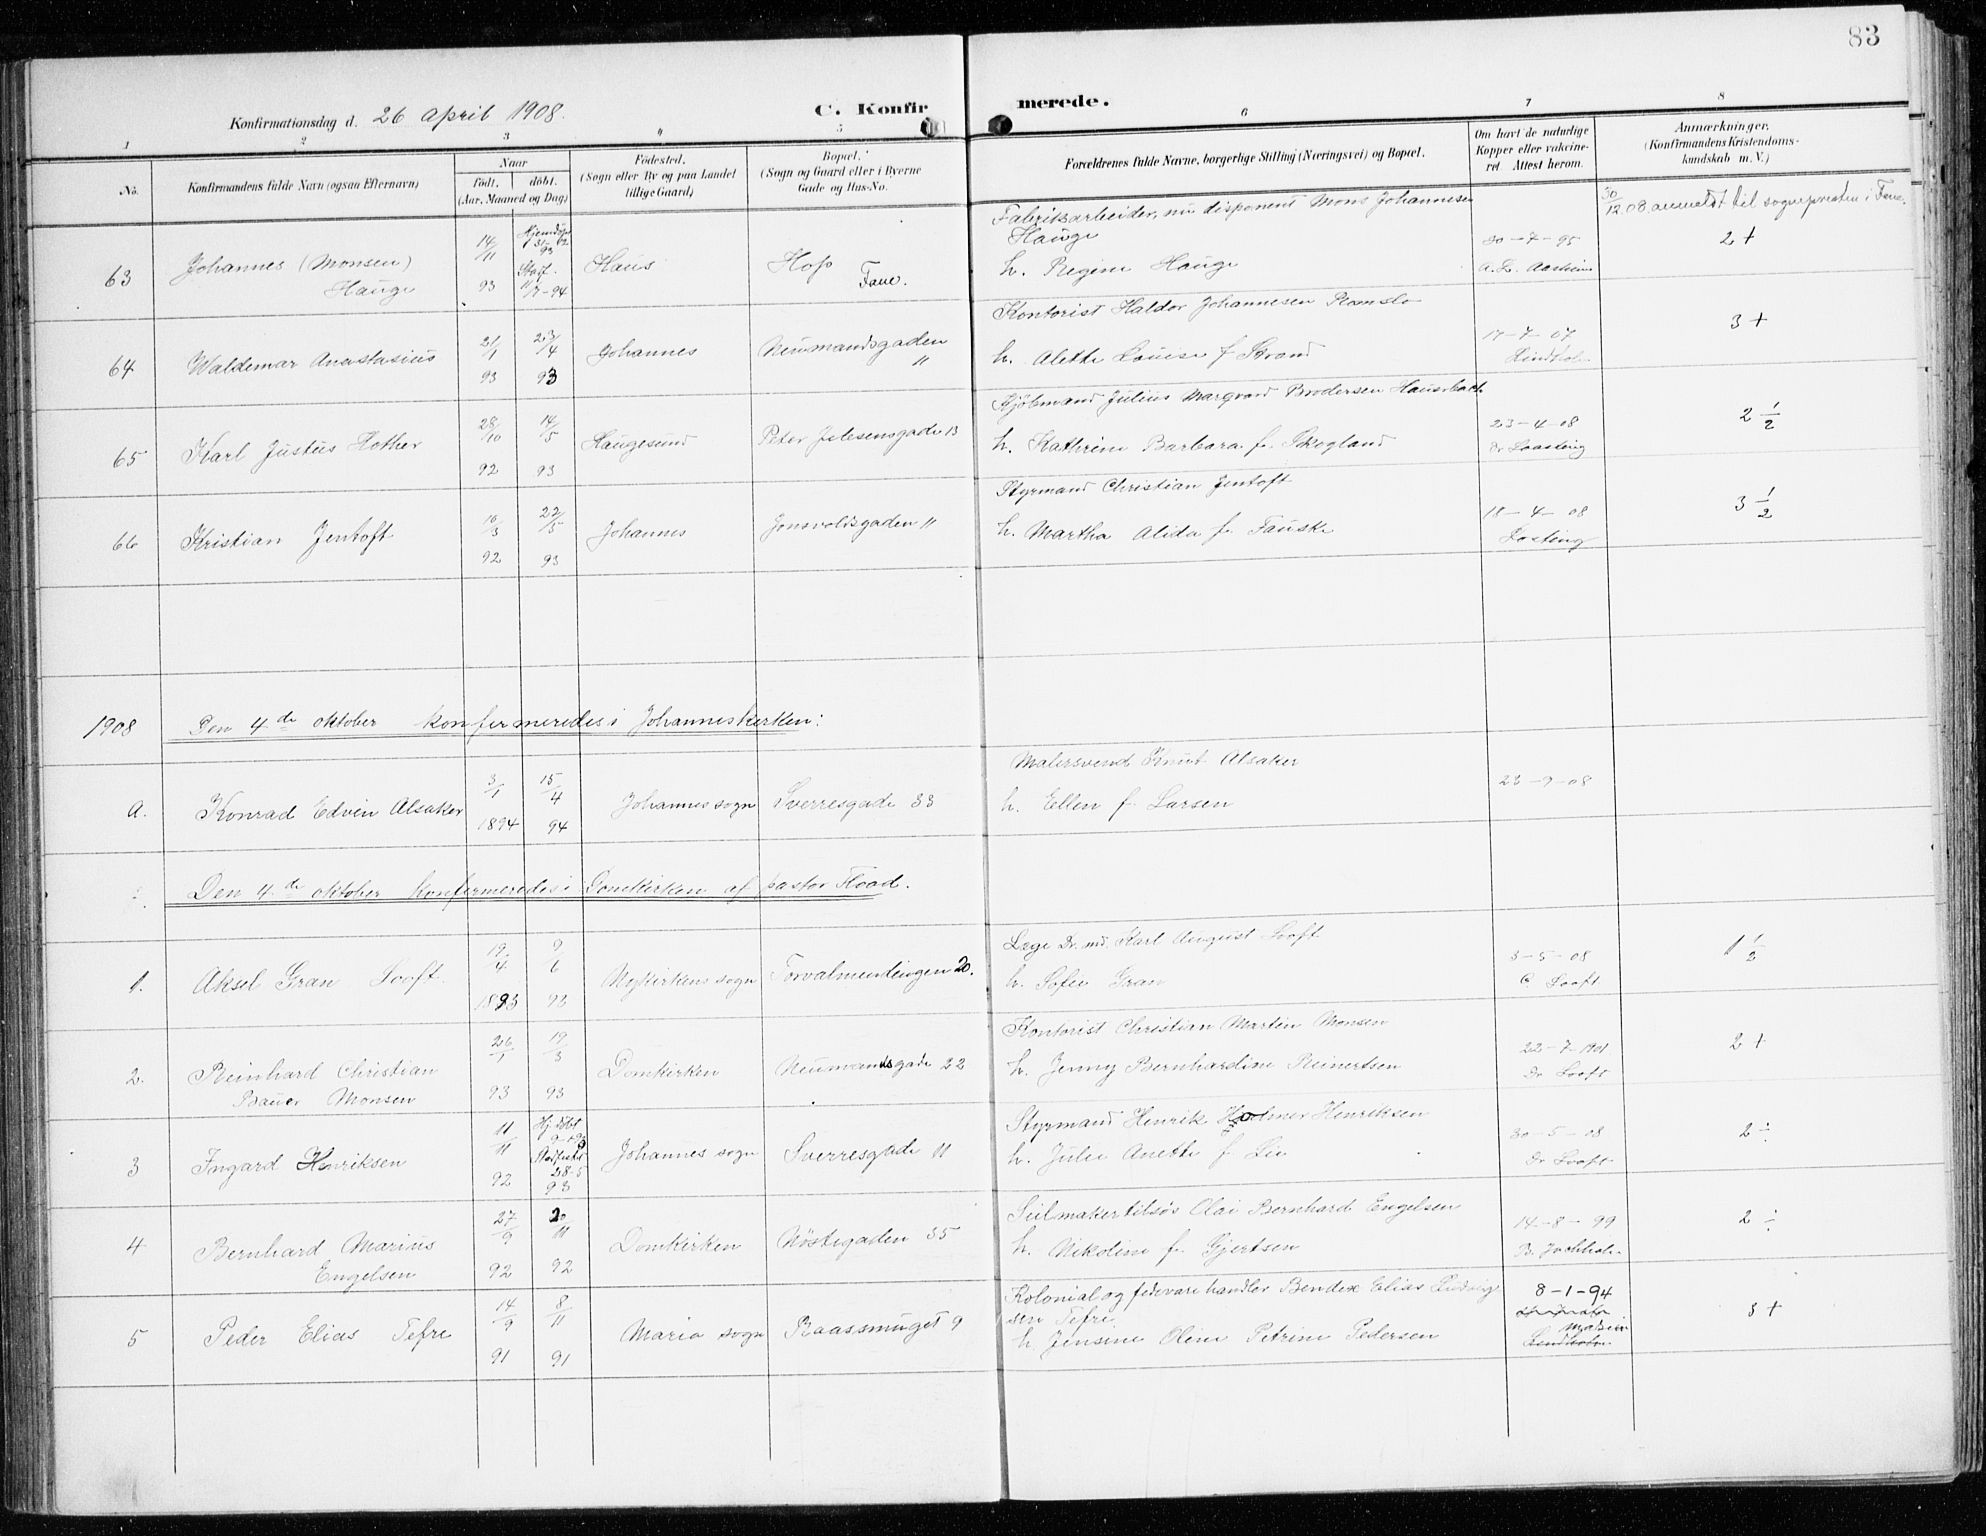 83
Konfirmationsdag d. 26 April 1908.
C. Konfirmerede.
1 2 3 4 5 6 7 8
No.
Konfirmandens fulde Navn (ogsaa Efternavn)
Naar
født. døbt.
(Aar, Maaned og Dag)
Fødested.
(Sogn eller By og paa Landet
tillige Gaard)
Bopæl.
(Sogn og Gaard eller i Byerne
Gade og Hus-No.
Forældrenes fulde Navne, borgerlige Stilling (Næringsvei) og Bopæl.
Om havt de naturlige
Kopper eller vakcine-
ret. Attest herom.
Anmærkninger.
(Konfirmandens Kristendoms-
kundskab m. V.)
63
Johannes (Monsen)
Hauge
14/11
93
Hjemdøpt
31-12
93
Stadf.
11/7-94
Haus
Hop
Fane.
Fabrikarbeider, nu disponent Mons Johannesen
Hauge
h. Regine Hauge
30-7-95
30/12 08 anmeldt til sognepresten i Fane.
2+
64
Waldemar Anastasius
21/1
93
23/4
93
Johannes
Neumandsgaden
"
Kontorist Haldor Johannesen Romslo
h. Alette Louise f. Strand
17-7-07
3+
65
Karl Justus Hother
28/10
92
14/5
93
Haugesund
Peter Jebsensgade 13
Kjøbmand Julius Margvard Brodersen
h. Kathrine Barbara f. Skogland
23-4-08
2 1/2
66
Kristian Jentoft
10/3
92
22/5
93
Johannes
Jonsvoldsgaden 11
Styrmand Christian Jentoft
h. Martha Alida f. Fauske
18-4-08
3 1/2
1908
Den 4de oktober konfirmeredes i Johanneskirken:
a.
Konrad Edvin Alsaker
3/1
1894
15/4
94
Johannes sogn
Sverresgade 33
Malersvend Knut Alsaker
h. Ellen f. Larsen
23-9-08
Den 4de oktober konfermeredes i Domkirken af pastor Flood.
1.
Aksel Gran Looft.
19/4
1893
9/6
93
Nykirkens sogn
Torvalmendingen 20.
Læge Dr. md. Karl August Looft.
h. Sofie Gran
3-5-08
C. Looft.
1 1/2
2.
Reinhard Christian
Bauer Monsen
26/1
93
19/3
93
Domkirken
Neumandsgade 22
Kontorist Christian Martin Monsen
h. Jenny Bernhardine Reinertsen
22-7-1901
Dr Looft
2+
3
Ingard Henriksen
11/11
92
Hj døbt
Stadfæstet
28-5
93
Johannes sogn
Sverresgade 11
Styrmand Henrik Holmer Henriksen
h. Julie Anette f. Lie
30-5-08
Dr Looft
2÷
4
Bernhard Marius
Engelsen
27/9
92
20/11
92
Domkirken
Nøstegaden 35
Seilmaker tilsøs Olai Bernhard Engelsen
h. Nikoline f. Gjertsen
14-8-99
2÷
5
Peder Elias Tefre
14/9
91
8/11
91
Maria sogn
Raassmuget 9
Kolonial og fedevare handler Bendix Elias Ludvig
sen Tefre
h. Jensine Oline Petrine Pedersen
8-1-94
Madsen
Lindholm
3+